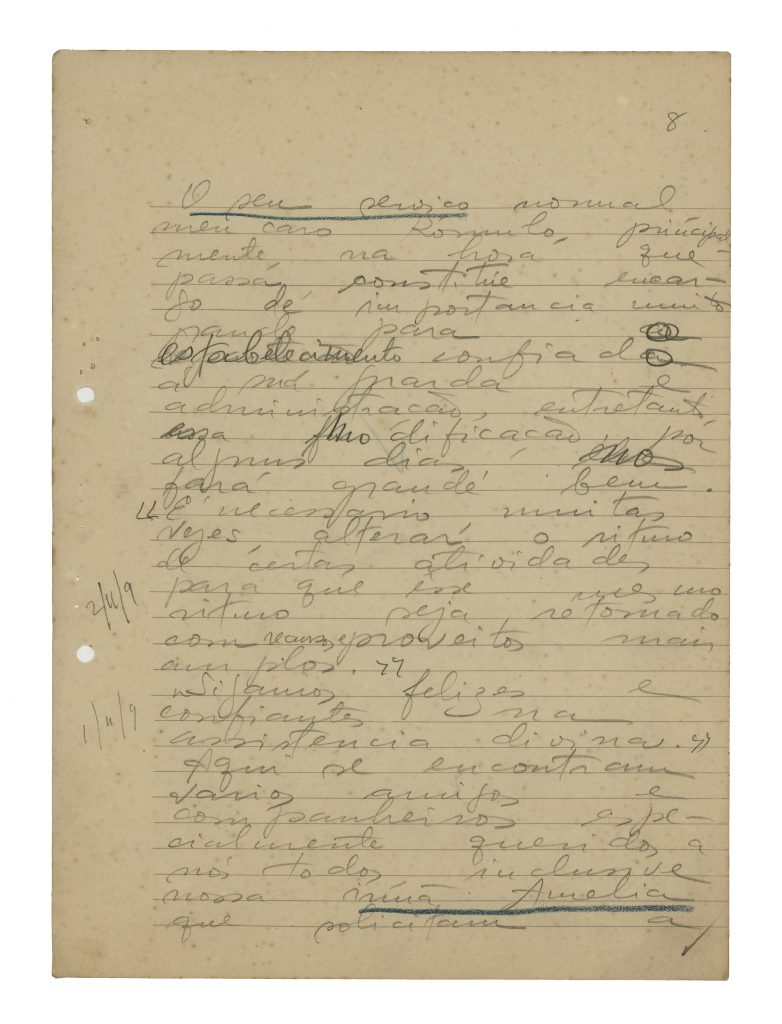 8
O seu serviço normal
meu caro Romulo, principal
mente na hora que
passa, constitúe encar-
go de importancia muito
grande para o
estabelecimento confiado
á sua guarda e
administração, entretanto
essa modificação, por
alguns dias, nos
fará grande bem.
"É necessario muitas
vezes alterar o ritmo
de certas atividades
para que êsse mesmo
ritmo seja retomado
com proveitos mais
amplos."
Sigamos felizes e
confiantes na
assistencia divina."
Aqui se encontram
varios amigos e
companheiros espe-
cialmente queridos a
nós todos inclusive
nossa irmã Amelia
que solicitam a
2/11/9
1/11/9